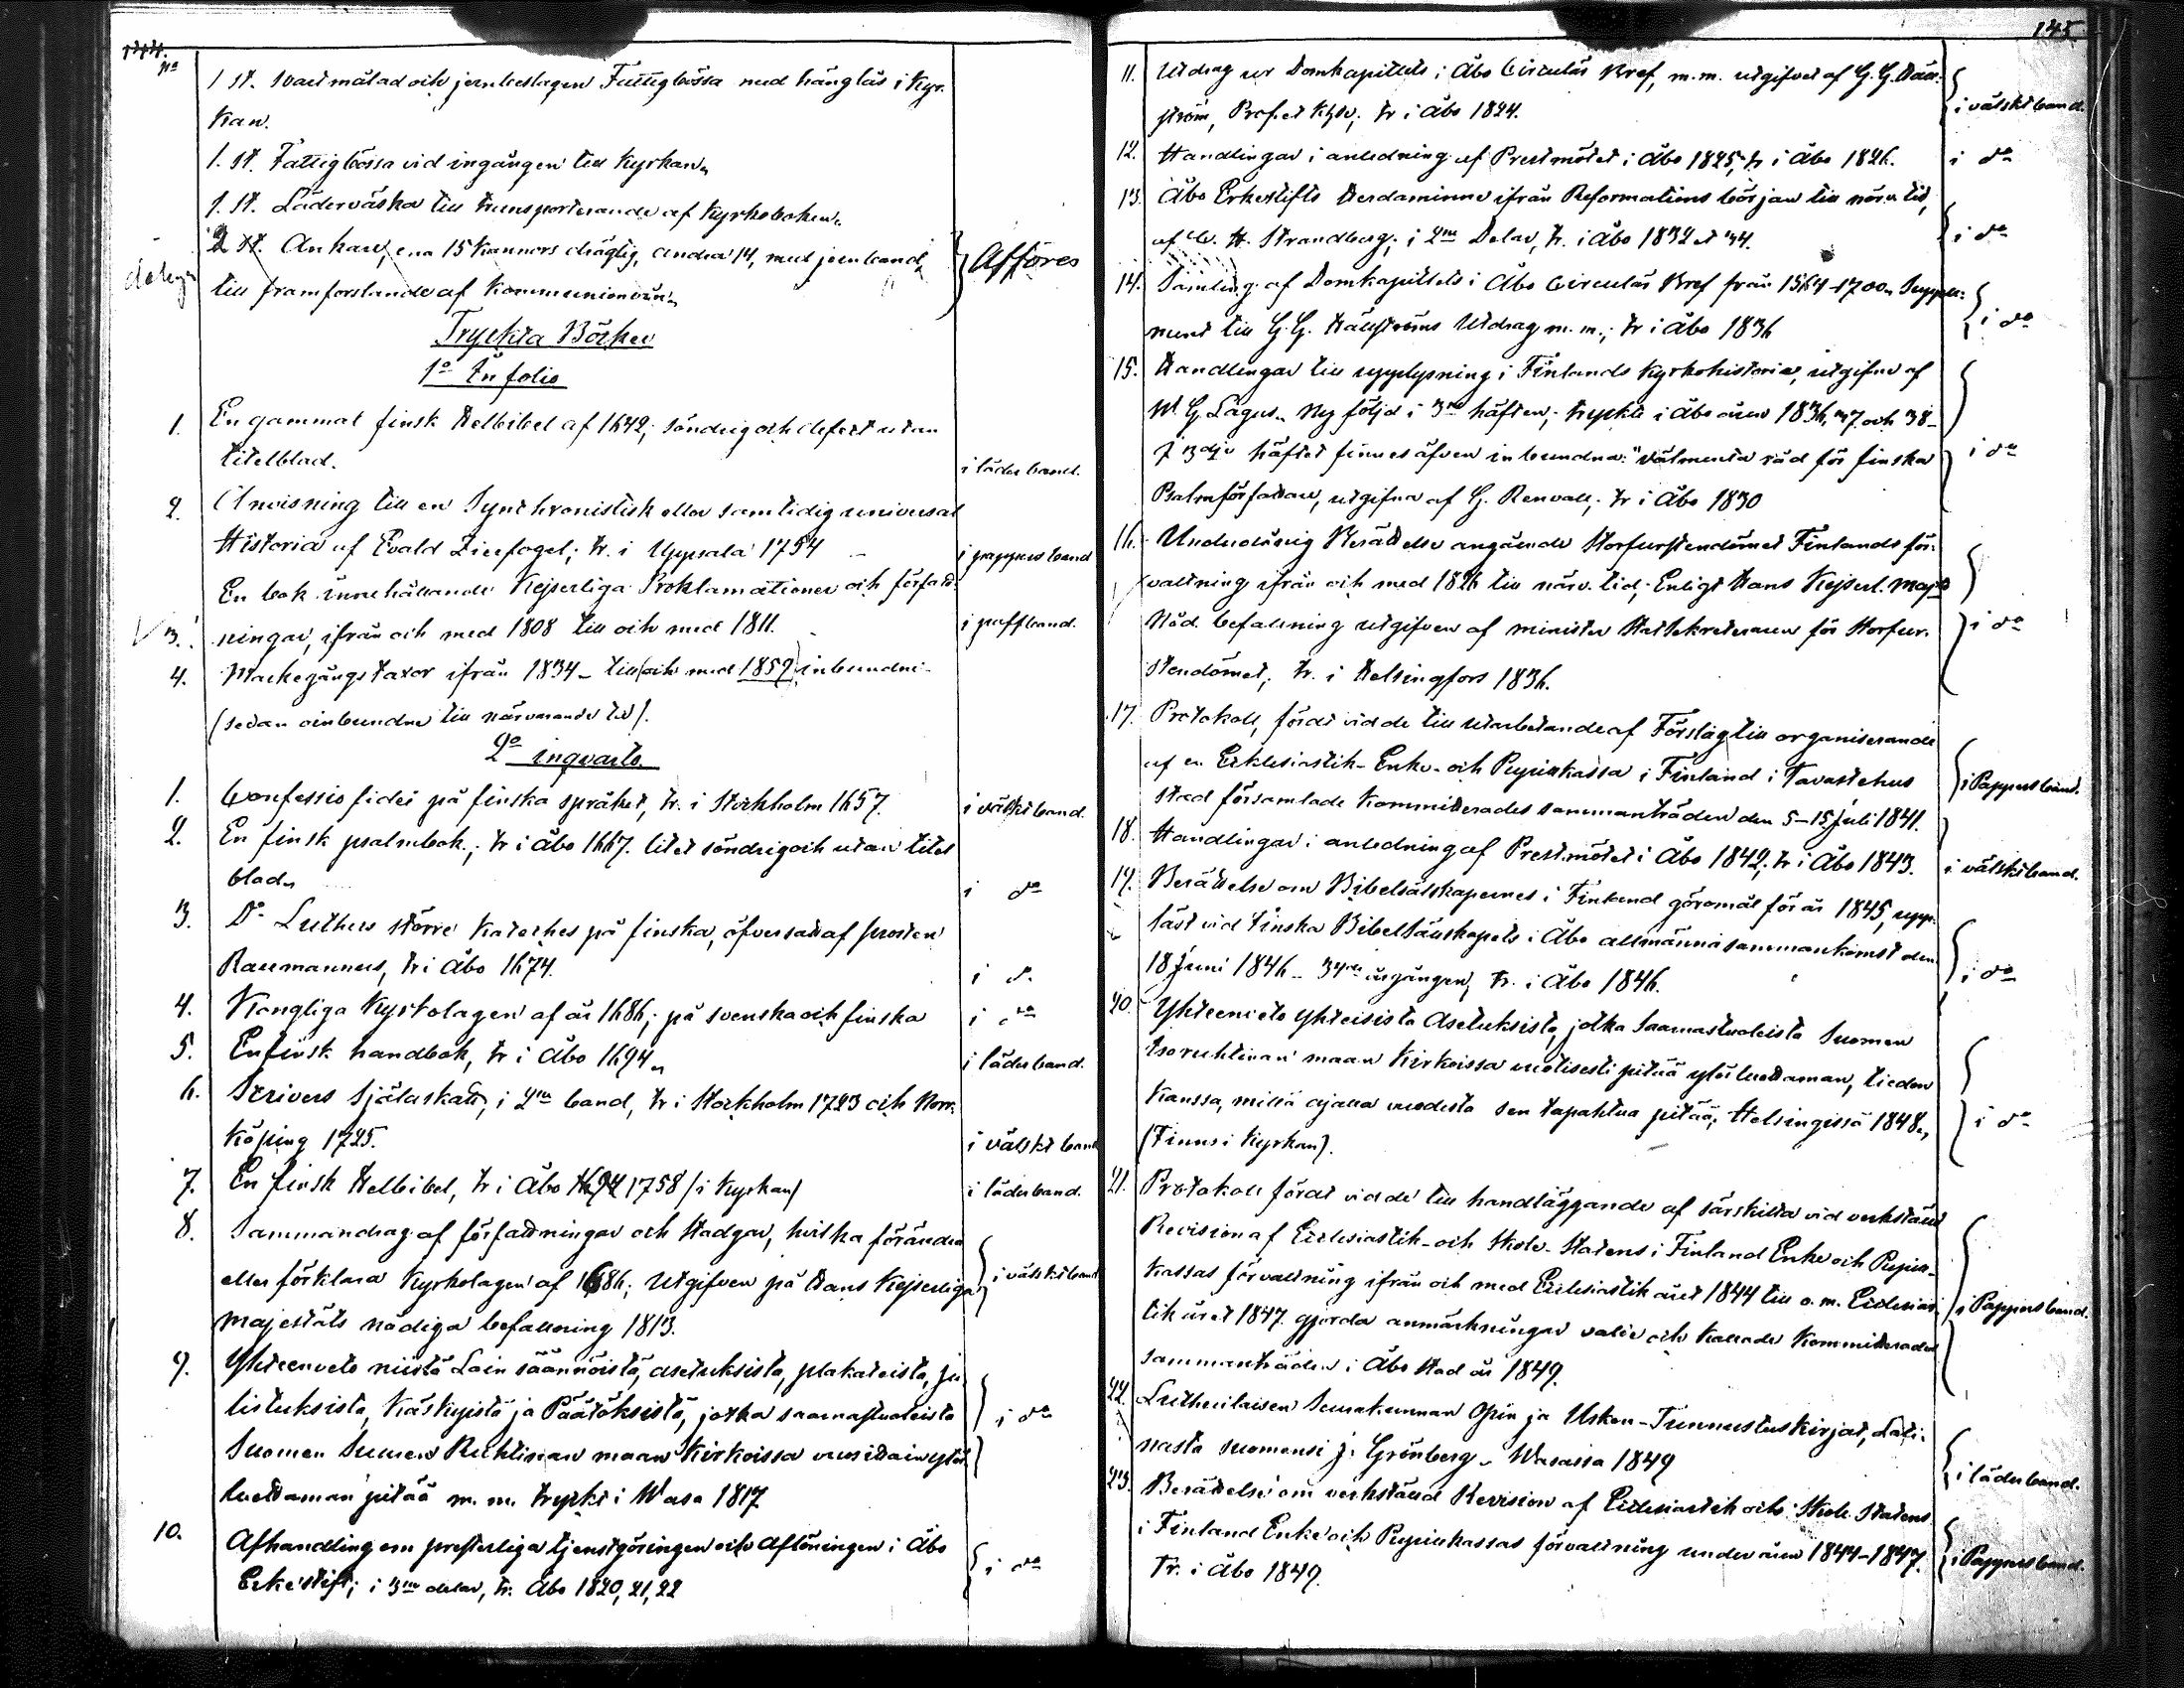 1 st. svartmålad och jernbeslagen Fattigbössa med hänglås i Kyr-
kan.
1. st. Fattigbössa vid ingången till Kyrkan
1. st. Läderväska till transporterande af Kyrkoboken
2 st. Ankare, ena 15 kannors drägtig, andra 14, med jernband
till framforslande af Kommunionvin
Afföres
Tryckta Böcker
1o In folio
1. En gammal finsk Helbibel af 1642; söndrig och defect utan
titelblad.
i läderband.
2. Anvisning till en Synchronistisk eller samtidig universal
Historia af Evald Ziervogel; tr. i Uppsala 1754
i pappersband
En bok innehållande Kejserliga Proklamationer och författ-
3. ningar, ifrån och med 1808 till och med 1811.
i paffband.
4. Markegångstaxor ifrån 1834 - till och med 1859 inbundne
(sedan oinbundne till närvarande tid).
2o in qvarto
1. Confessio fidei på finska språket, tr. i Stockholm 1657.
i välskt band.
2. En finsk psalmbok; tr i Åbo 1667. litet söndrig och utan titel
blad
i do
3. Dr Luthers större Kateches på finska, öfversatt af prosten
Raumannus, tr i Åbo 1674.
i do
4. Kongliga Kyrkolagen af år 1686; på svenska och finska
i do
5. En finsk handbok, tr i Åbo 1694
i läderband.
6. Scrivers Själaskatt, i 2ne band, tr i Stockholm 1723 och Norr-
köping 1725.
i välskt band
7. En finsk Helbibel, tr i Åbo 1694 1758 (i Kyrkan)
i läderband.
8. Sammandrag af författningar och stadgar, hvilka förändra
eller förklara Kyrkolagen af 1686; utgifven på Hans Kejserliga
Majestäts nådiga befallning 1813.
i välskt band
9. Yhteenveto niistä Lain säännöistä, asetuksista, plakateista, ju-
listuksista, Käskyistä ja Päätöksistä, jotka saarnastuoleista
Suomen Suuren Ruhtinan maan Kirkoissa vuosittain ylös
luettaman pitää m. m. tryckt i Wasa 1817
i do
10. Afhandling om presterliga tjenstgöringen och aflöningen i Åbo
Erkestift; i 3ne delar, tr. Åbo 1820, 21, 22
i do
145.
11. Utdrag ur Domkapitlets i Åbo Circulär Bref, m.m. utgifvet af G. G. Häll-
ström, Prof. et Khde; tr i Åbo 1824.
i välskt band.
12. Handlingar i anledning af Prestmötet i Åbo 1825; tr i Åbo 1826.
i do
13. Åbo Erkestifts Herdaminne ifrån Reformations början till närv. tid,
af C. H. Strandberg; i 2ne Delar, tr. i Åbo 1832 et 34.
i do
14. Samling af Domkapitlets i Åbo Circulär Bref från 1564-1700. Supple-
ment till G. G. Hällströms Utdrag m. m.; tr i Åbo 1836
i do
15. Handlingar till upplysning i Finlands Kyrkohistoria, utgifne af
W. G. Lagus. Ny följd i 3ne häften; tryckte i Åbo åren 1836, 37 och 38 -
I 3dje häftet finnes äfven inbundna: "välmenta råd för finska
Psalmförfattare, utgifna af G. Renvall; tr i Åbo 1830
i do
16. Underdånig Berättelse angående Storfurstendömet Finlands för-
valtning ifrån och med 1826 till närv. tid; Enligt Hans Kejserl. Majts
Nåd. befallning utgifven af minister Statssekreteraren för Storfur-
stendömet, tr. i Helsingfors 1836.
i do
17. Protokoll, fördt vid de till utarbetande af Förslag till organiserande
af en Ecklesiastik- Enke- och Pupillkassa i Finland i Tavastehus
stad församlade Kommitterades sammanträden den 5-15 Juli 1841.
i Pappersband.
18. Handlingar i anledning af Prestmötet i Åbo 1842; tr i Åbo 1843.
i välskt band.
19. Berättelse om Bibelsälskapernes i Finland göromål för år 1845, upp-
läst vid Finska Bibelsällskapets i Åbo allmänna sammankomst den
18 Juni 1846 - 34de årgången, tr. i Åbo 1846.
i do
20. Yhteenveto yhteisistä Asetuksista, jotka Saarnastuoleista Suomen
Isoruhtinan maan Kirkoissa vuotisesti pitää ylösluettaman, tiedon
kanssa, millä ajalla vuodesta sen tapahtua pitää; Helsingissä 1848
(Finns i Kyrkan).
i do
21. Protokoll fördt vid de till handläggande af särskilta vid verkställd
Revision af Ecclesiastik- och Skole-Statens i Finland Enke och Pupill-
kassas förvaltning ifrån och med Ecclesiastikåret 1844 till o. m. Ecclesias-
tikåret 1847. gjorda anmärkningar valde och kallade Kommitterades
sammanträden i Åbo stad år 1849.
i Pappersband.
22. Lutherilaisen Seurakunnan Opin ja Uskon-Tunnustuskirjat, Lati-
nasta suomensi J. Grönberg - Wasassa 1849
i läderband.
23. Berättelse om verkställd Revision af Ecclesiastik och Skole Statens
i Finland Enke och Pupillkassas förvaltning under åren 1844-1847.
Tr. i Åbo 1849.
i Pappersband.